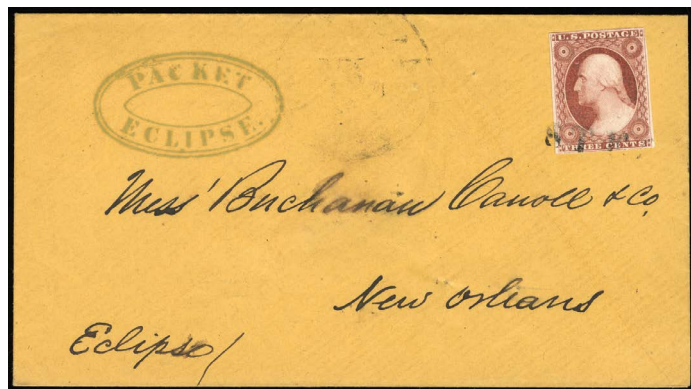 PACKET
ECLIPSE.
U.S. POSTAGE
THREE CENTS
Mess' Buchanan Carroll & Co,
New Orleans
Eclipse/